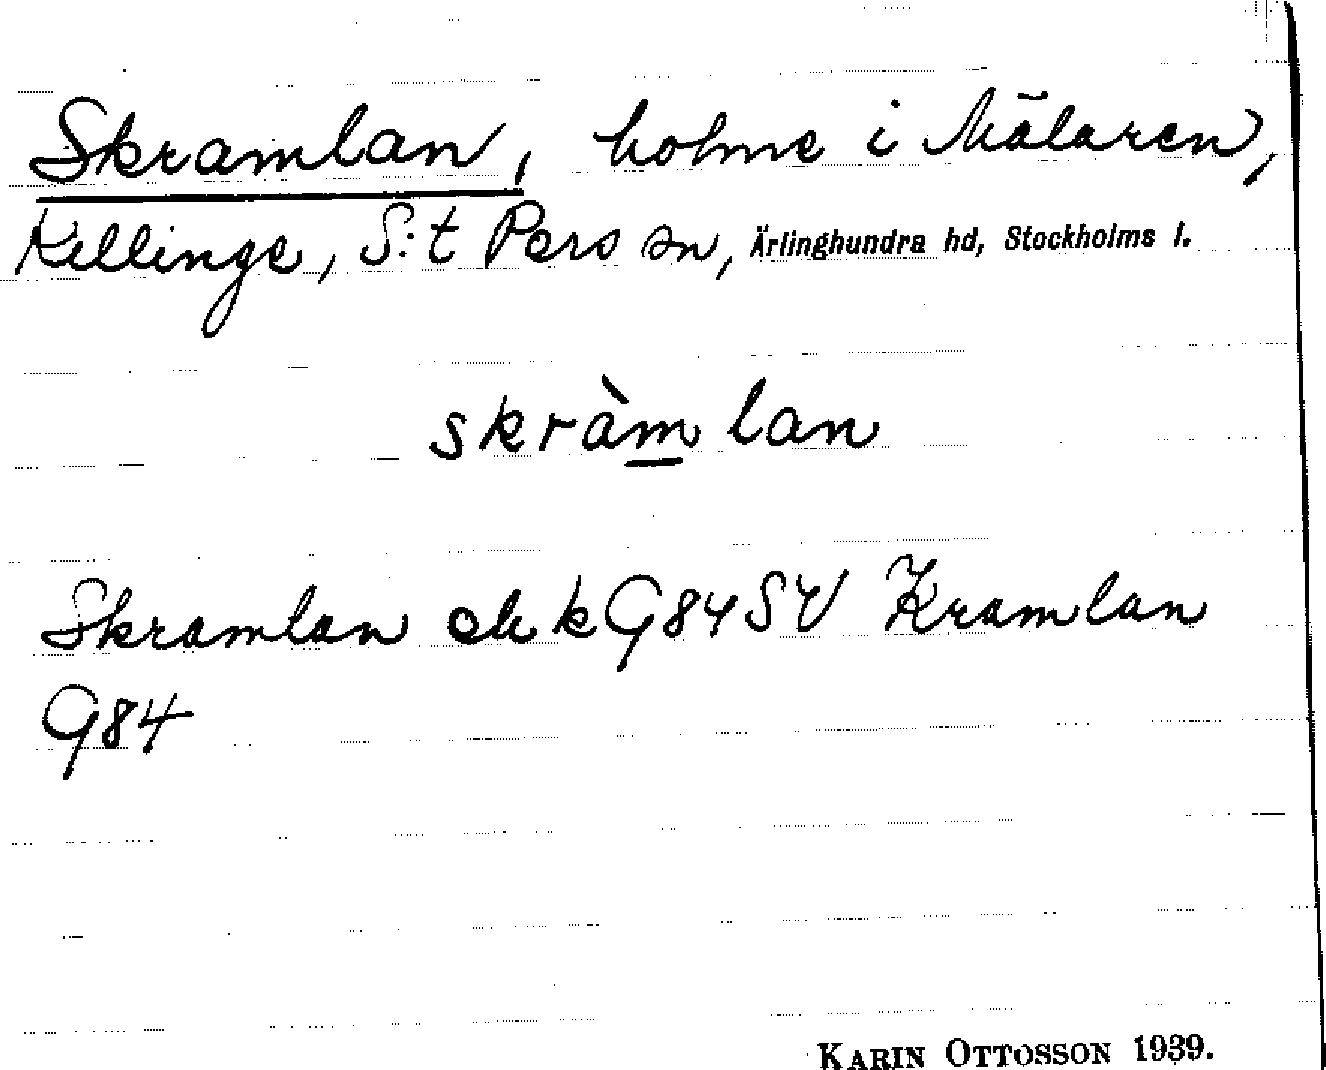 Skramlan, holme i Mälaren,
Killinge, S:t Pers sn, Ärlinghundra hd, Stockholms l.
skràm̲lan
Skramlan ek k G84SV Kramlan
G84
KARIN OTTOSSON 1939.